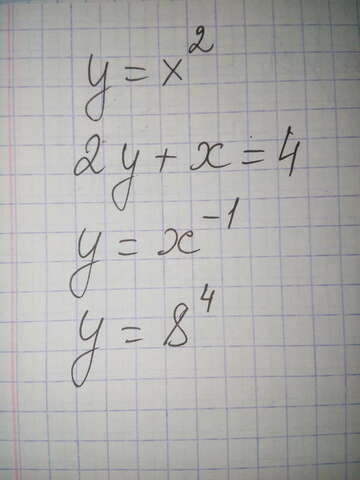 y = x²
2y + x = 4
y = x⁻¹
y = 8⁴